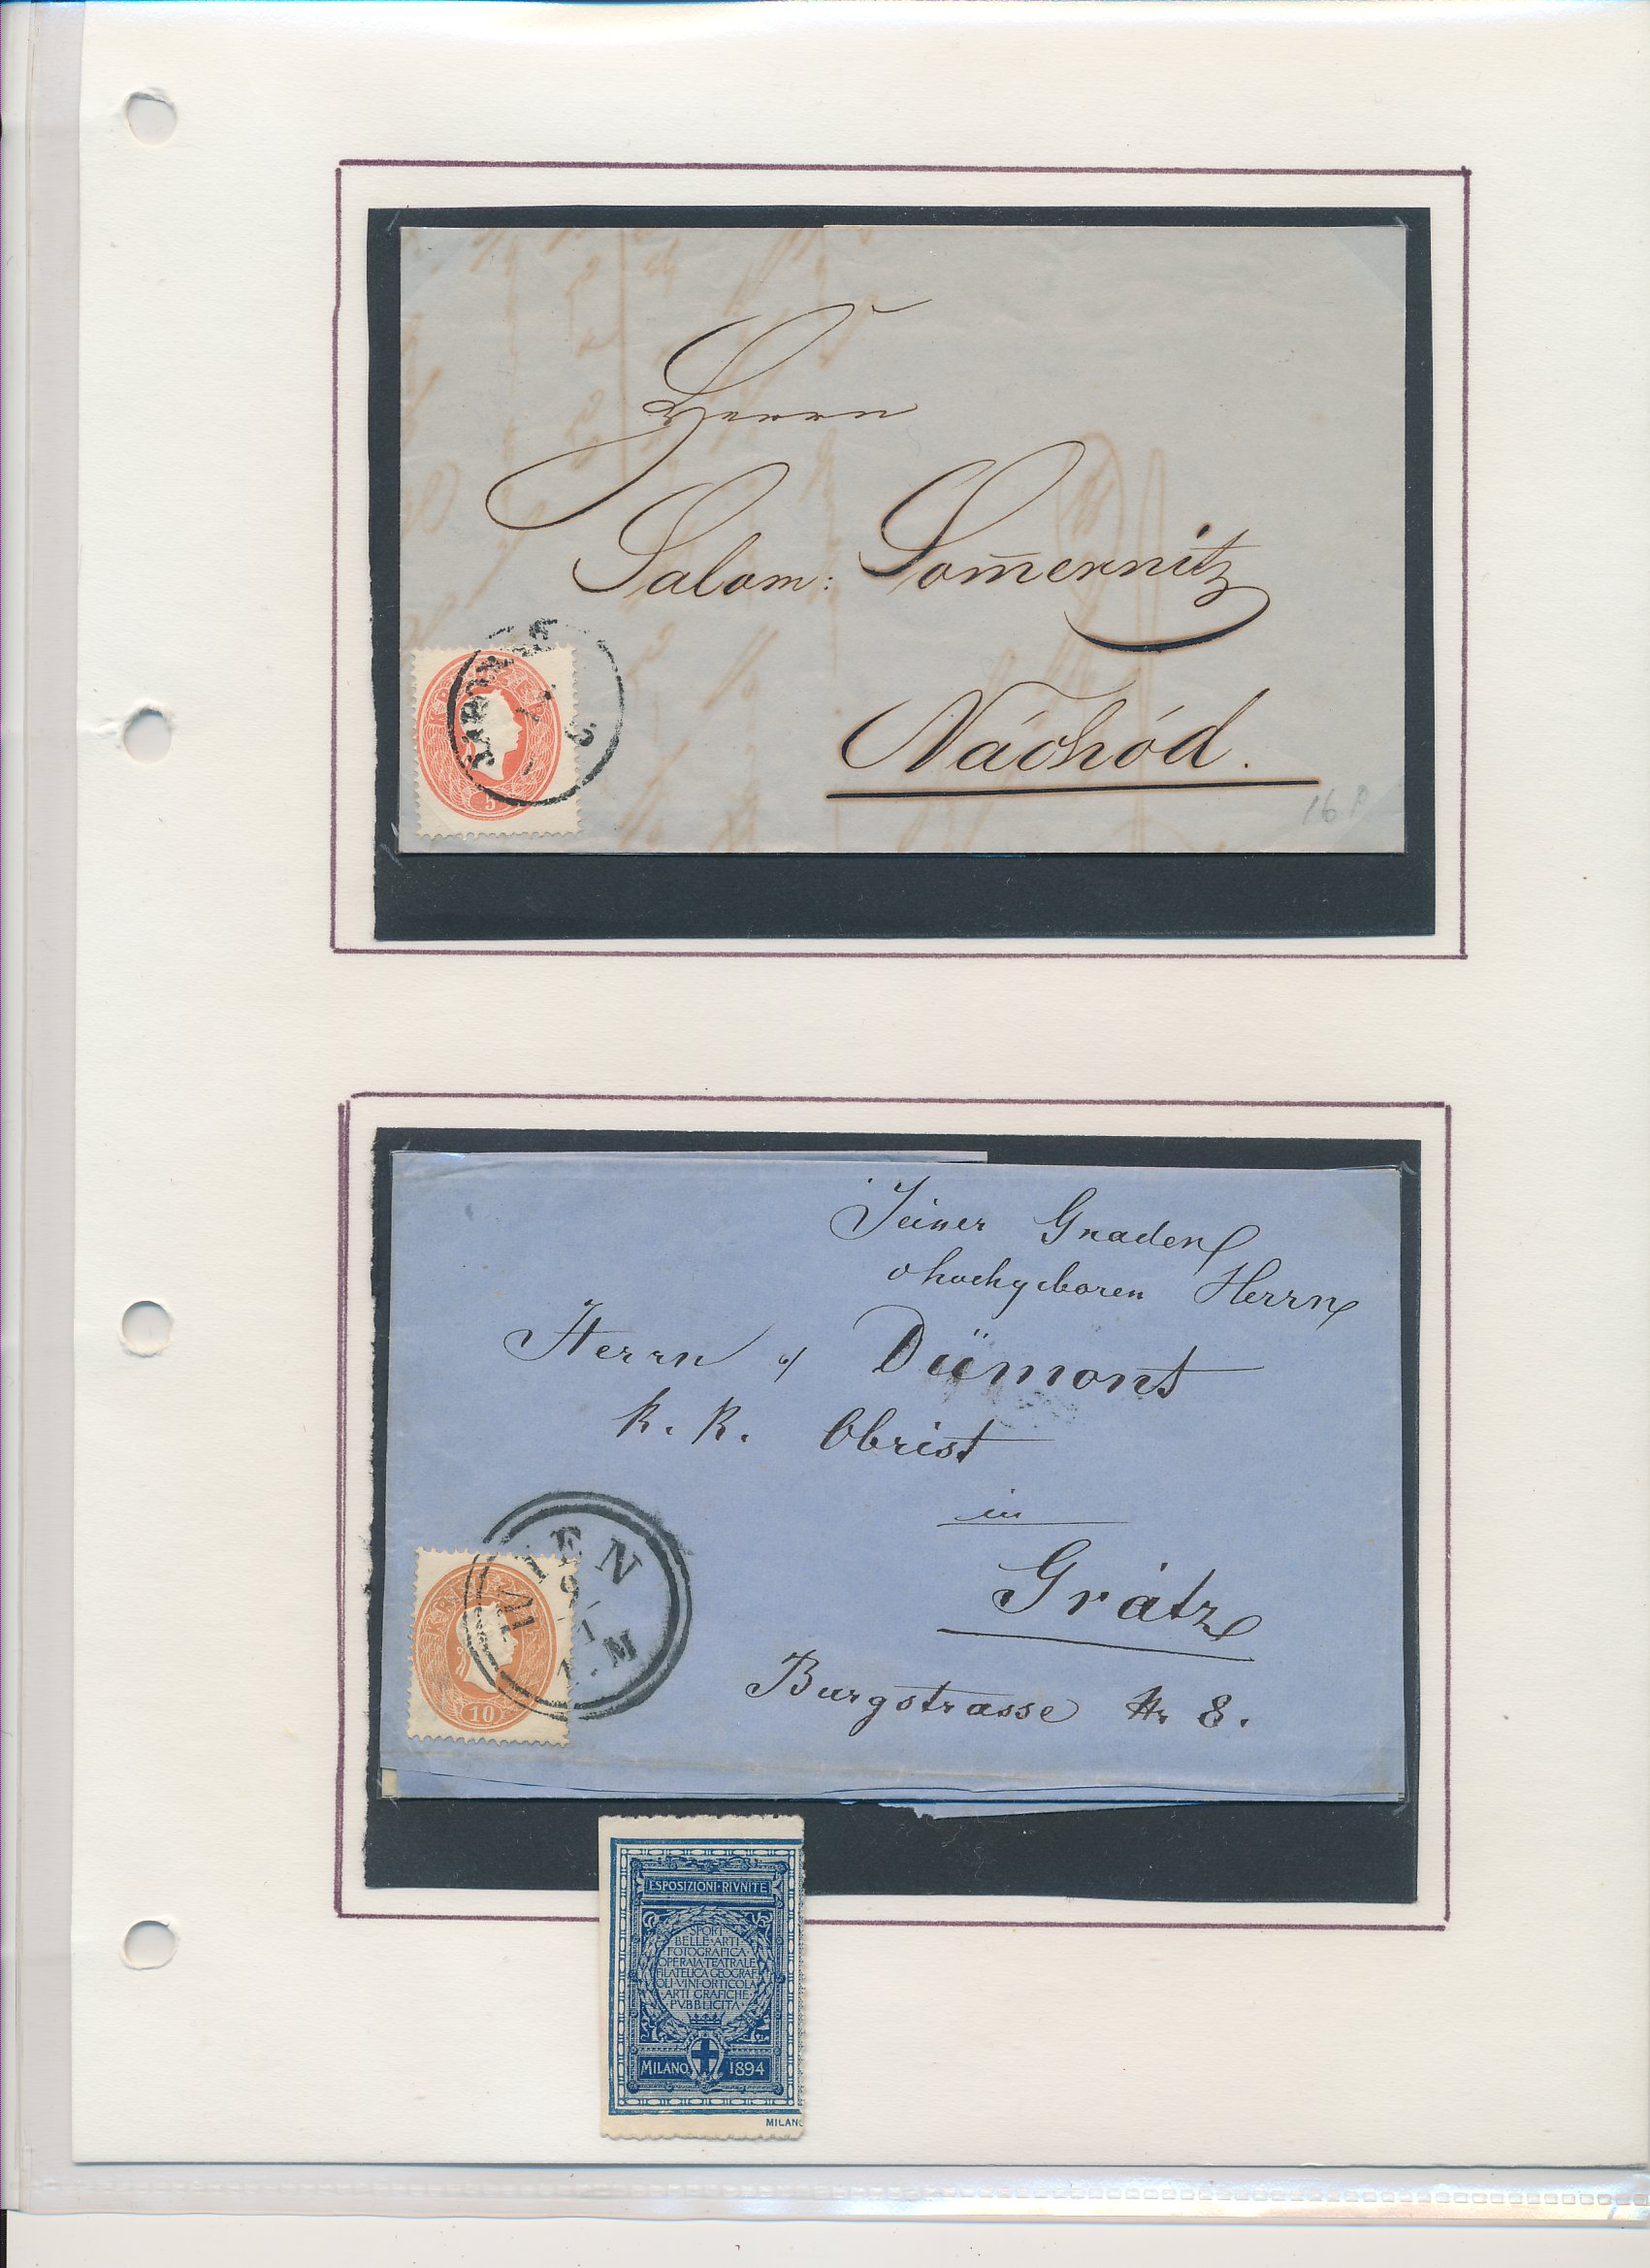 Herrn
Salom: Som̄ernitz
Náchód.
5
16
Seiner Gnaden
hochgeboren Herrn
Herrn v Dümont
K. K. Obrist
in
Grätz
Burgstrasse Nr 8.
WIEN
9
1
1. M
10
ESPOSIZIONI·RIVNITE
SPORT
BELLE·ARTI
FOTOGRAFICA·
OPERAIA·TEATRALE
FILATELICA GEOGRAF
OLI·VINI·ORTICOLA
·ARTI GRAFICHE·
PVBBLICITA·
MILANO 1894
MILANO